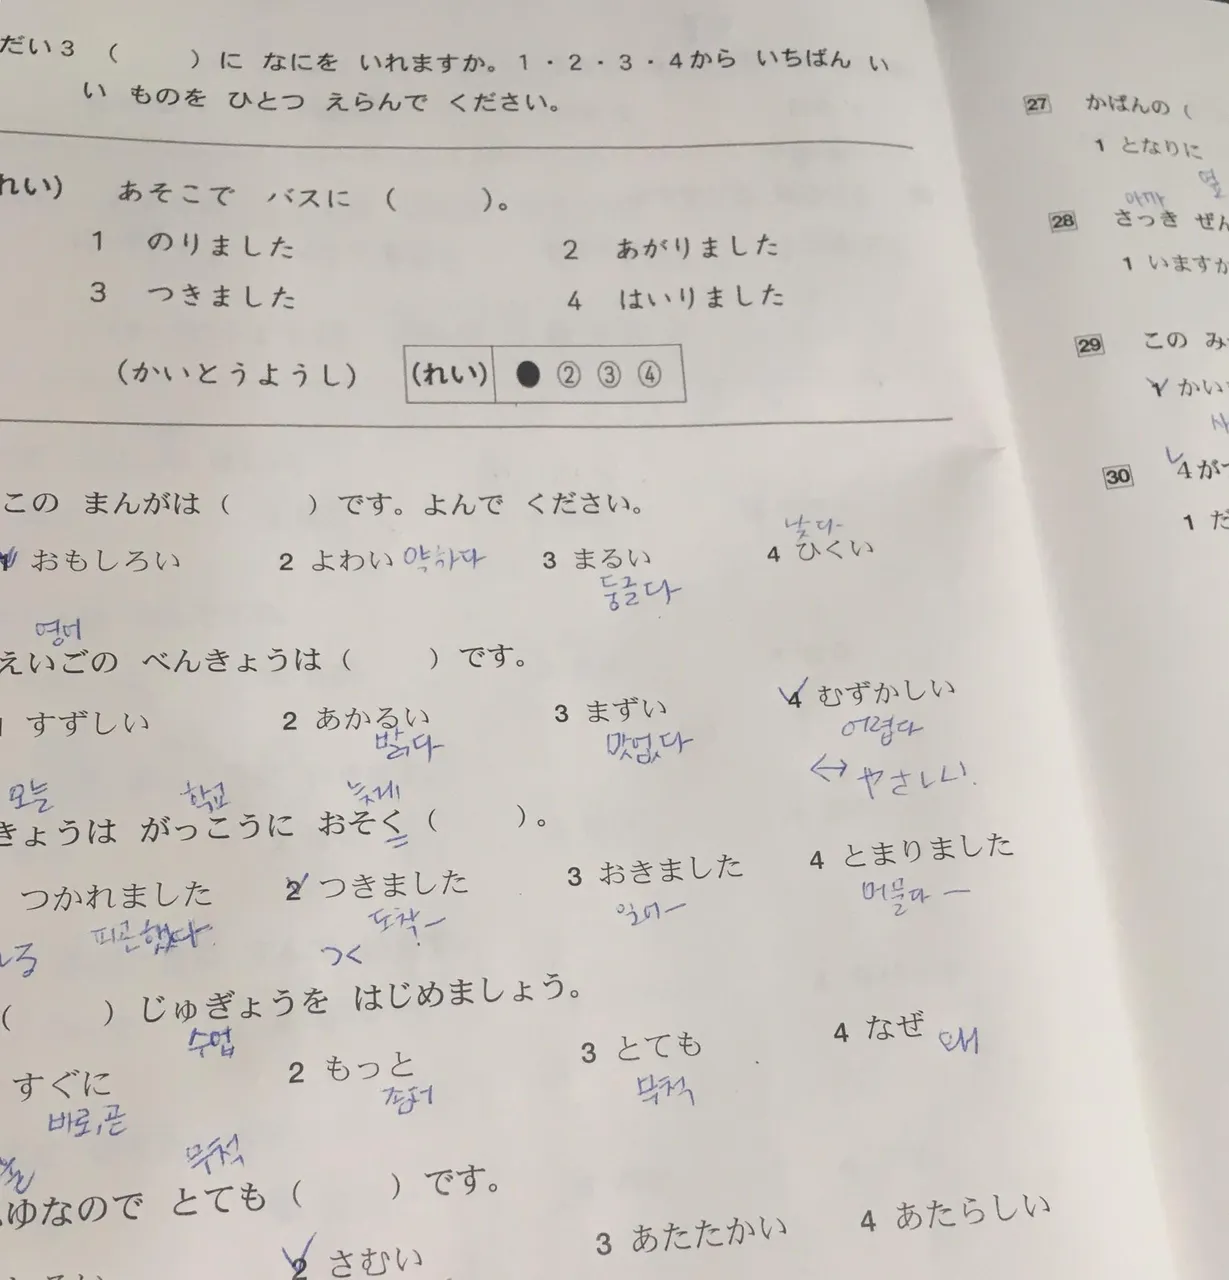 だい3 （　　）に なにを いれますか。1・2・3・4から いちばん い
い ものを ひとつ えらんで ください。
れい） あそこで バスに （　　）。
1 のりました 2 あがりました
3 つきました 4 はいりました
（かいとうようし） （れい） ● ② ③ ④
この まんがは（　　）です。よんで ください。
낮다
1 おもしろい 2 よわい 약하다 3 まるい 4 ひくい
둥글다
영어
えいごの べんきょうは（　　）です。
1 すずしい 2 あかるい 3 まずい 4 むずかしい
밝다 맛없다 어렵다
↔ やさしい.
오늘 학교 늦게
きょうは がっこうに おそく（　　）。
つかれました 2 つきました 3 おきました 4 とまりました
피곤했다 도착ー 일어ー 머물다 ー
る つく
（　　）じゅぎょうを はじめましょう。
수업
すぐに 2 もっと 3 とても 4 なぜ 왜
바로, 곧 좀더 무척
무척
ゆなので とても（　　）です。
2 さむい 3 あたたかい 4 あたらしい
27 かばんの（
1 となりに
아까 열
28 さっき ぜん
1 いますか
29 この み
1 かい
사
30 4が
1 だ